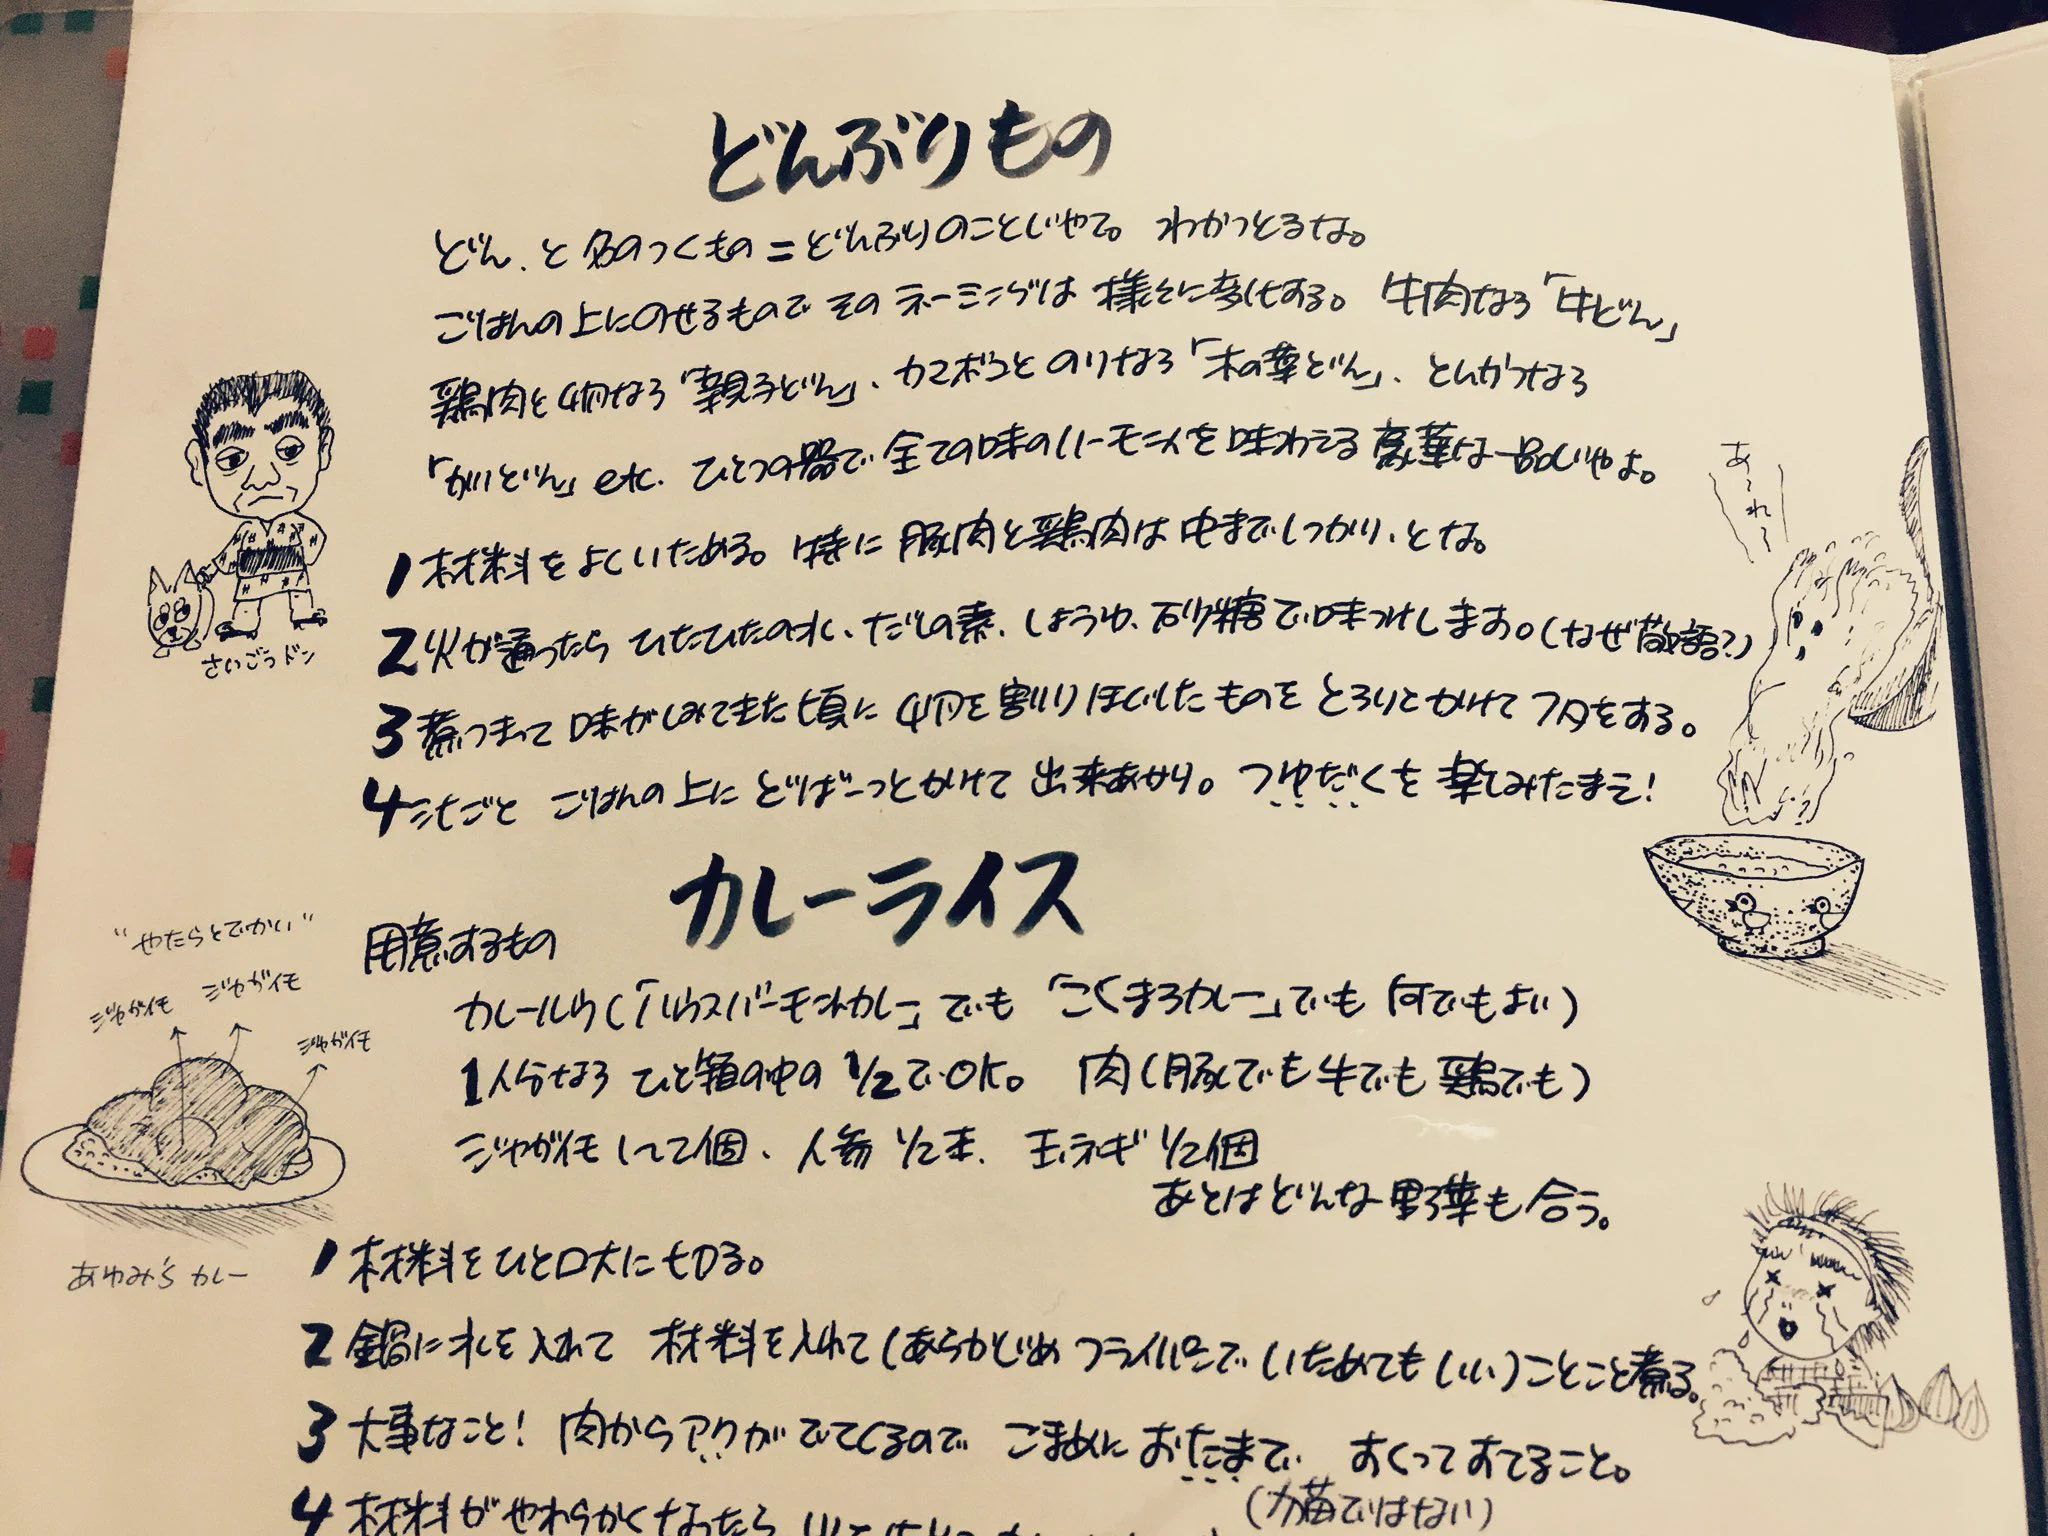 どんぶりもの
どん、と名のつくもの=どんぶりのことじゃて。わかっとるな。
ごはんの上にのせるもので そのネーミングは様々に変化する。牛肉なら「牛どん」
鶏肉と卵なら「親子どん」、カマボコとのりなら「木の葉どん」、とんかつなら
「かつどん」etc. ひとつの器で全ての味のハーモニィを味わえる豪華な一品じゃよ。
1 材料をよくいためる。特に豚肉と鶏肉は中までしっかり、とな。
2 火が通ったらひたひたの水、だしの素、しょうゆ、砂糖で味つけします。(なぜ敬語?)
3 煮つまって味がしみてきた頃に卵を割りほぐしたものをとろりとかけてフタをする。
4 汁ごと ごはんの上にどばーっとかけて出来あがり。つゆだくを楽しみたまえ!
さいごうドン
あ〜れ〜
カレーライス
用意するもの
カレールウ(「ハウスバーモントカレー」でも「こくまろカレー」でも何でもよい)
1人分なら ひと箱の中の1/2でOK。 肉(豚でも牛でも鶏でも)
ジャガイモ 1〜2個、人参 1/2本、玉ネギ 1/2個
あとはどんな野菜も合う。
"やたらとでかい"
ジャガイモ
ジャガイモ
ジャガイモ
あゆみ's カレー
1 材料をひと口大に切る。
2 鍋に水を入れて 材料を入れて(あらかじめフライパンでいためてもいい)ことこと煮る。
3 大事なこと! 肉からアクがでてくるので こまめにおたまで すくってすてること。
(力猫ではない)
4 材料がやわらかくなったら